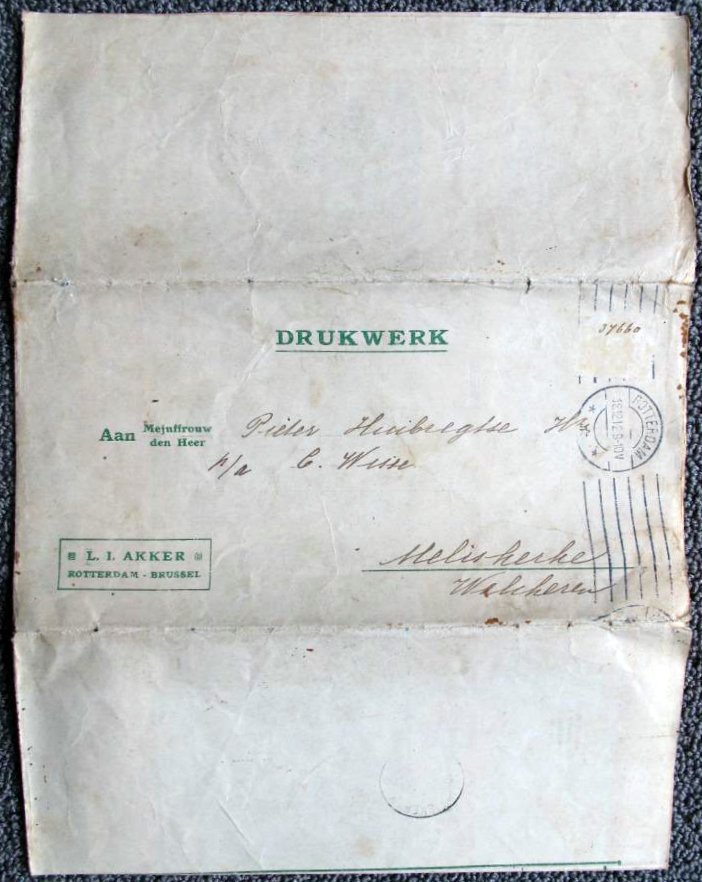 DRUKWERK
37660
Aan Mejuffrouw
den Heer
Pieter Huibregtse Hz
p/a C. Wisse
ROTTERDAM
L. I. AKKER
ROTTERDAM - BRUSSEL
Meliskerke
Walcheren